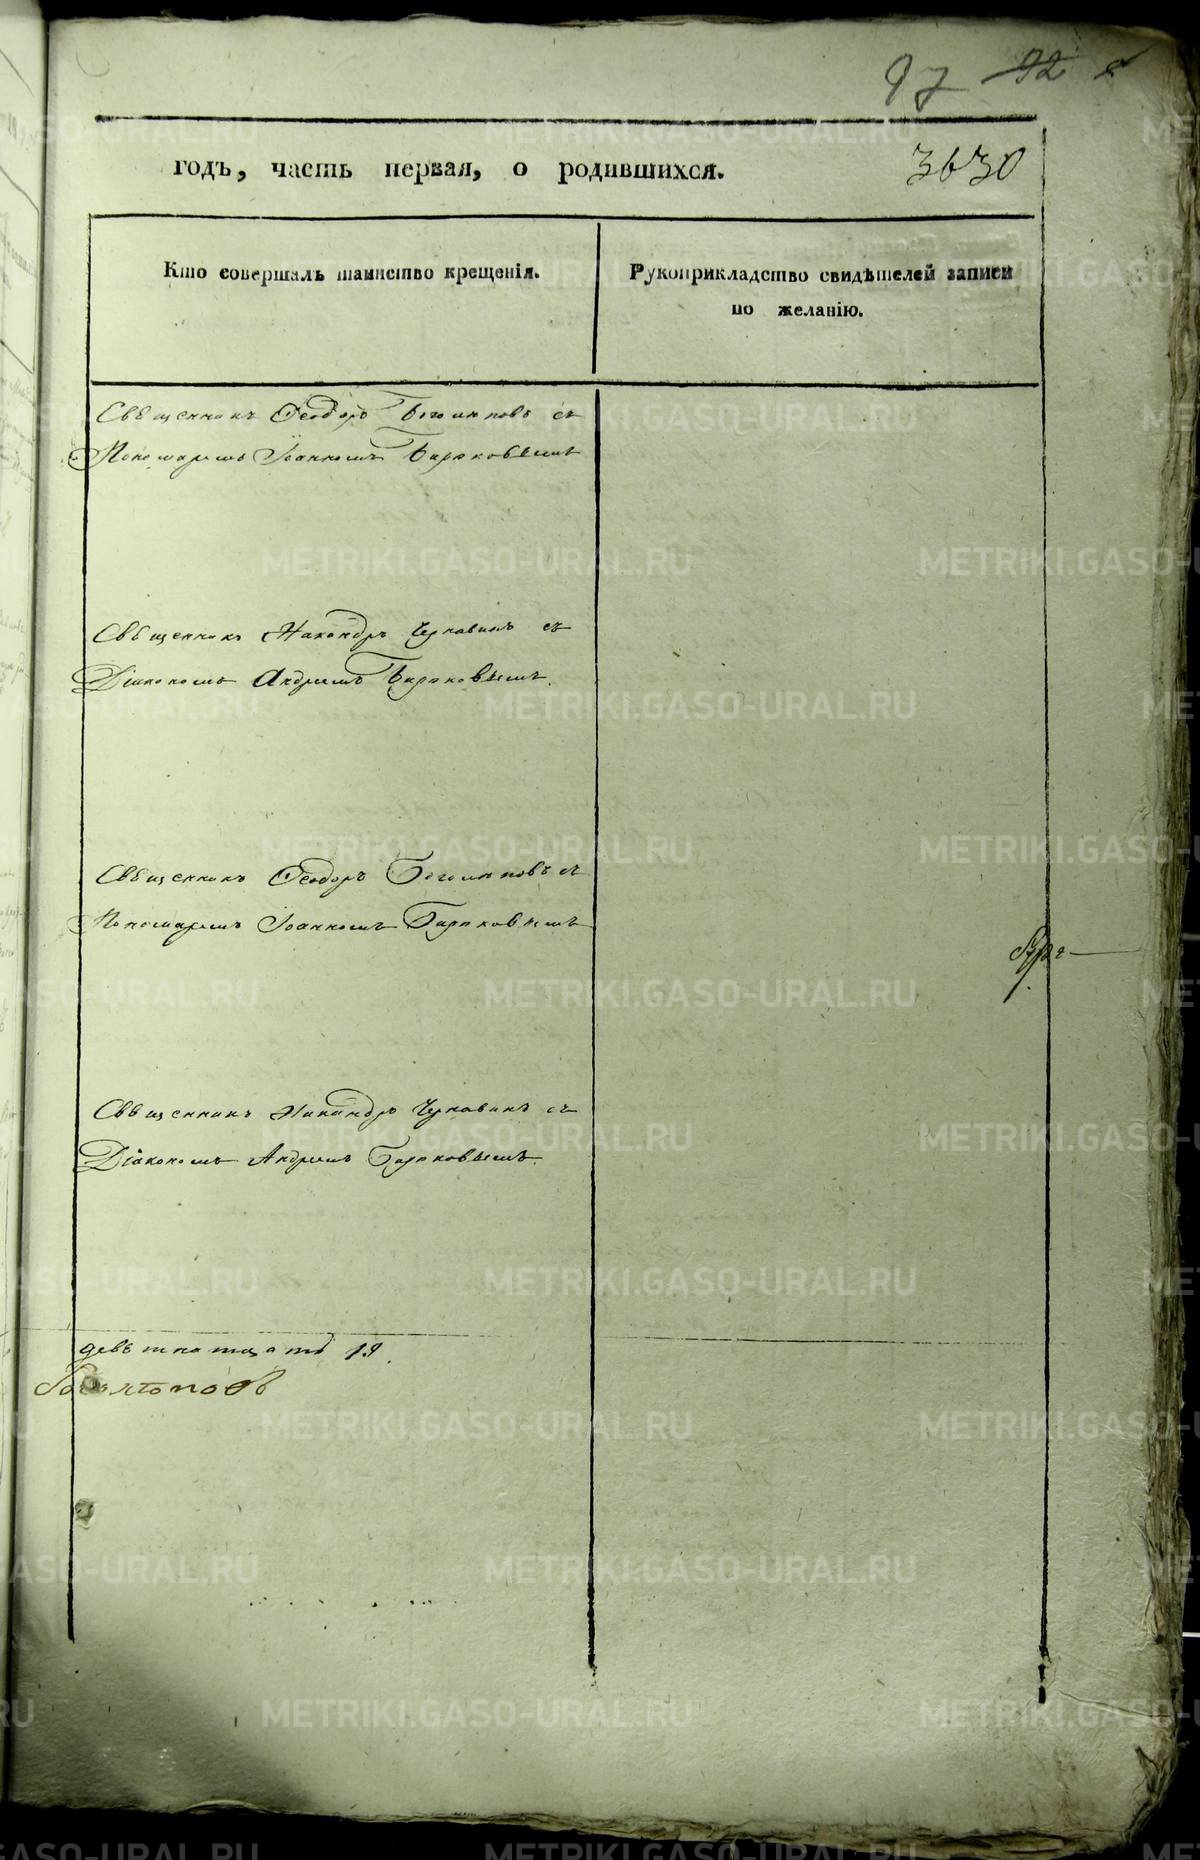 97 92
годъ, часть первая, о родившихся. 3630
Кто совершалъ таинство крещенія.
Рукоприкладство свидѣтелей записи
по желанію.
Священникъ Ѳеодоръ съ
Пономаремъ Іоанномъ Бирюковымъ
Священникъ Никандръ Чернавинъ съ
Діакономъ Андреемъ Бирюковымъ.
Священникъ Ѳеодоръ съ
Пономаремъ Іоанномъ Бирюковымъ
Священникъ Никандръ Чернавинъ съ
Діакономъ Андреемъ Бирюковымъ.
девятнатцать 19.
METRIKI.GASO-URAL.RU